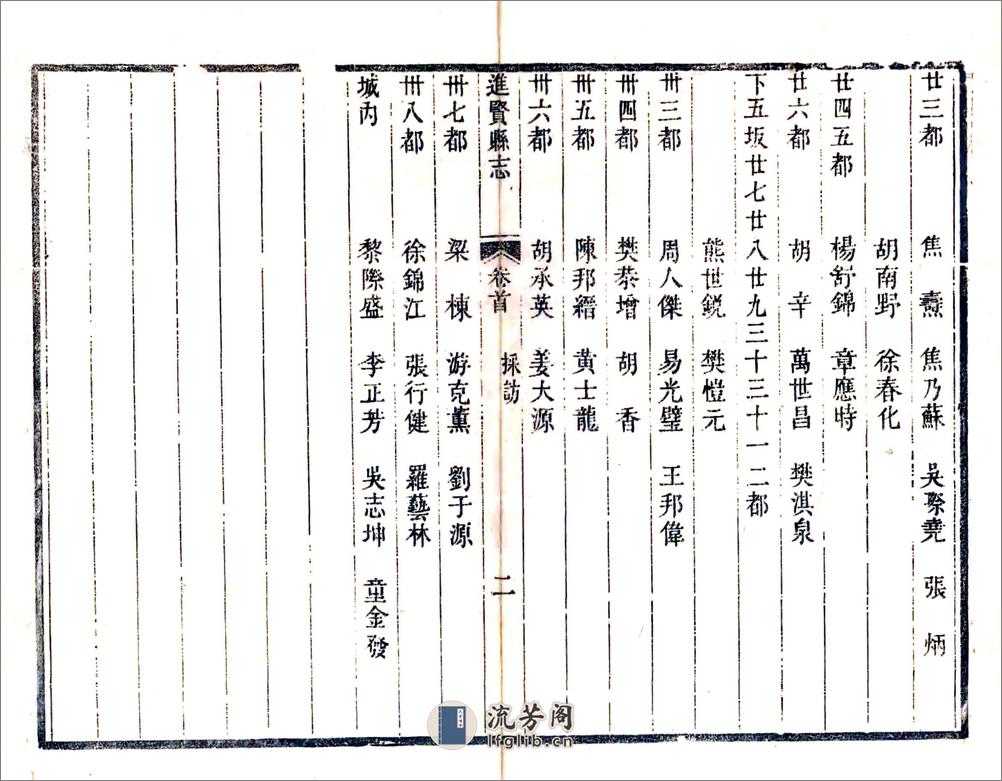 廿三都　焦燾　焦乃蘇　吳際堯　張炳
胡南野　徐春化
廿四五都　楊舒錦　章應時
廿六都　胡辛　萬世昌　樊淇泉
下五坂廿七廿八廿九三十三十一二都
熊世銳　樊愷元
周人傑　易光璧　王邦偉
卅三都
卅四都　樊菾增　胡香
卅五都　陳邦縉　黄士龍
卅六都　胡承英　姜大源
進賢縣志　卷首　採訪　二
卅七都　梁棟　游克薰　劉于源
卅八都　徐錦江　張行健　羅藝林
城內　黎際盛　李正芳　吳志坤　童金發
流芳阁
lfglib.cn